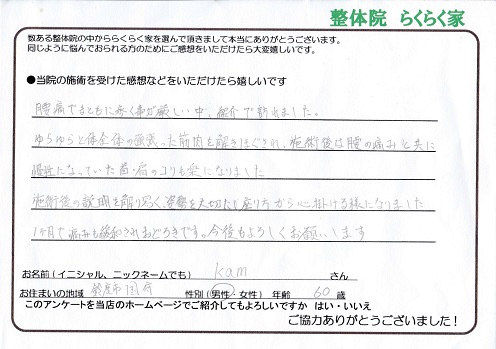 整体院 らくらく家
数ある整体院の中かららくらく家を選んで頂きまして本当にありがとうございます。
同じように悩んでおられる方のためにご感想をいただけたら大変嬉しいです。
●当院の施術を受けた感想などをいただけたら嬉しいです
腰痛でまともに歩く事が厳しい中、紹介で訪れました。
ゆらゆらと体全体の強張った筋肉を解きほぐされ、施術後は腰の痛みと共に
慢性になっていた首・肩のコリも楽になりました
施術後の説明を解り易く、姿勢を大切にし座り方から心掛ける様になりました
1ヶ月で痛みも緩和されおどろきです。今後もよろしくお願いします
お名前(イニシャル、ニックネームでも) kam さん
お住まいの地域 鈴鹿市 性別(男性・女性) 年齢 60 歳
このアンケートを当店のホームページでご紹介してもよろしいですか はい・いいえ
ご協力ありがとうございました!